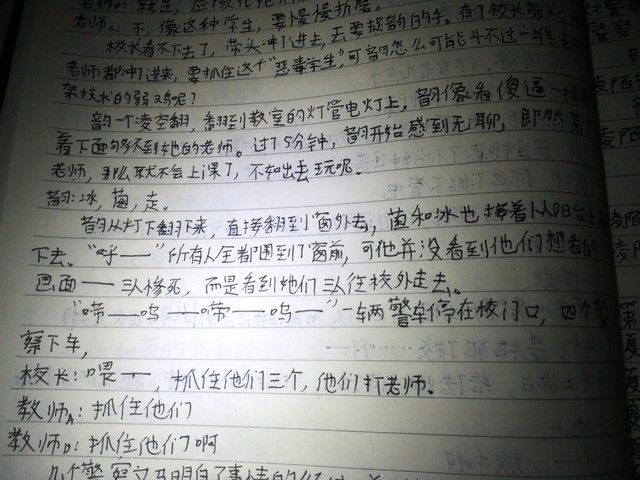 老师B: 就是, 应该
老师C: 不, 像这种学生, 要慢慢折磨。
校长看不下去了, 带头冲了进去, 去要捉韵的手。有了校长带头,
老师都冲了进来, 要抓住这个“恶毒学生”, 可韵怎么可能斗不过一堆毫无
架技术的弱鸡呢?
韵一个凌空翻, 翻到教室的灯管电灯上, 韵像看傻逼一样
着下面够不到她的老师。过了5分钟, 韵开始感到无聊, 即然惹
老师, 那么就不会上课了, 不如出去玩呢。
韵: 冰, 菌, 走。
韵从灯下翻下来, 直接翻到窗外去, 菌和冰也接着从阳台上
下去。“呼——”所有人全都围到了窗前, 可他并没看到他们想看的
画面——三人惨死, 而是看到她们三人往校外走去。
“嘀——呜——嘀——呜——”一辆警车停在校门口, 四个警
察下车,
校长: 喂——, 抓住他们三个, 他们打老师。
教师A: 抓住他们
教师B: 抓住他们啊
几个警察立马明白了事情的